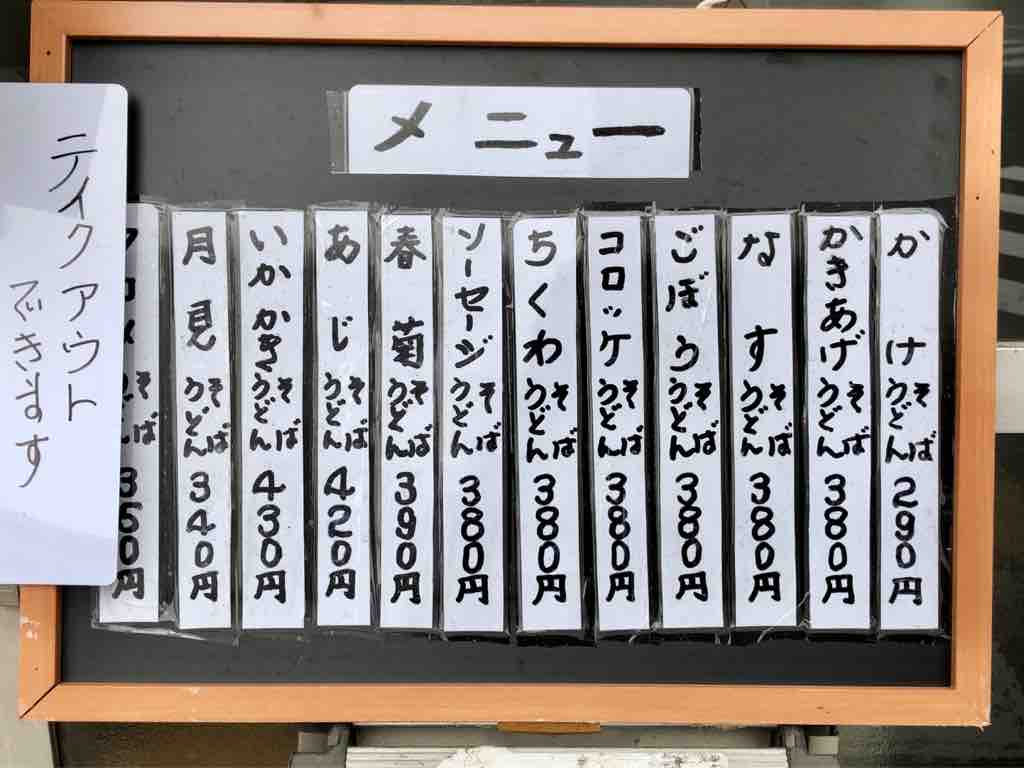 メニュー
かけ そば うどん 290円
かきあげ そば うどん 380円
なす そば うどん 380円
ごぼう そば うどん 380円
コロッケ そば うどん 380円
ちくわ そば うどん 380円
ソーセージ そば うどん 380円
春菊 そば うどん 390円
あじ そば うどん 420円
いかかき そば うどん 430円
月見 そば うどん 340円
そば 円
テイクアウト
できます